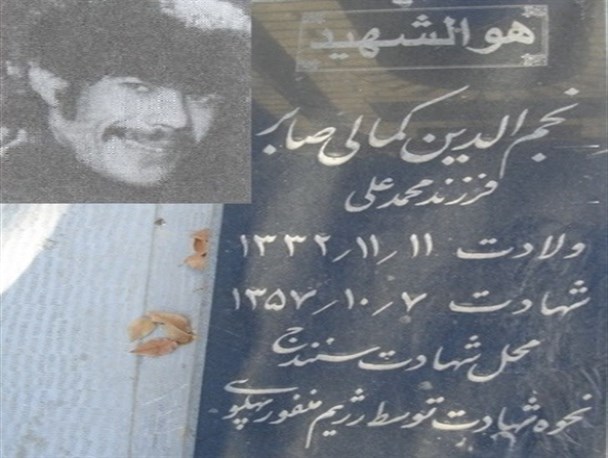 هوالشهید
نجم الدین کمالی صابر
فرزند محمدعلی
ولادت ۱۱ر۱۱ر۱۳۳۲
شهادت ۷ر۱۰ر۱۳۵۷
محل شهادت سنندج
نحوه شهادت توسط رژیم منفور پهلوی